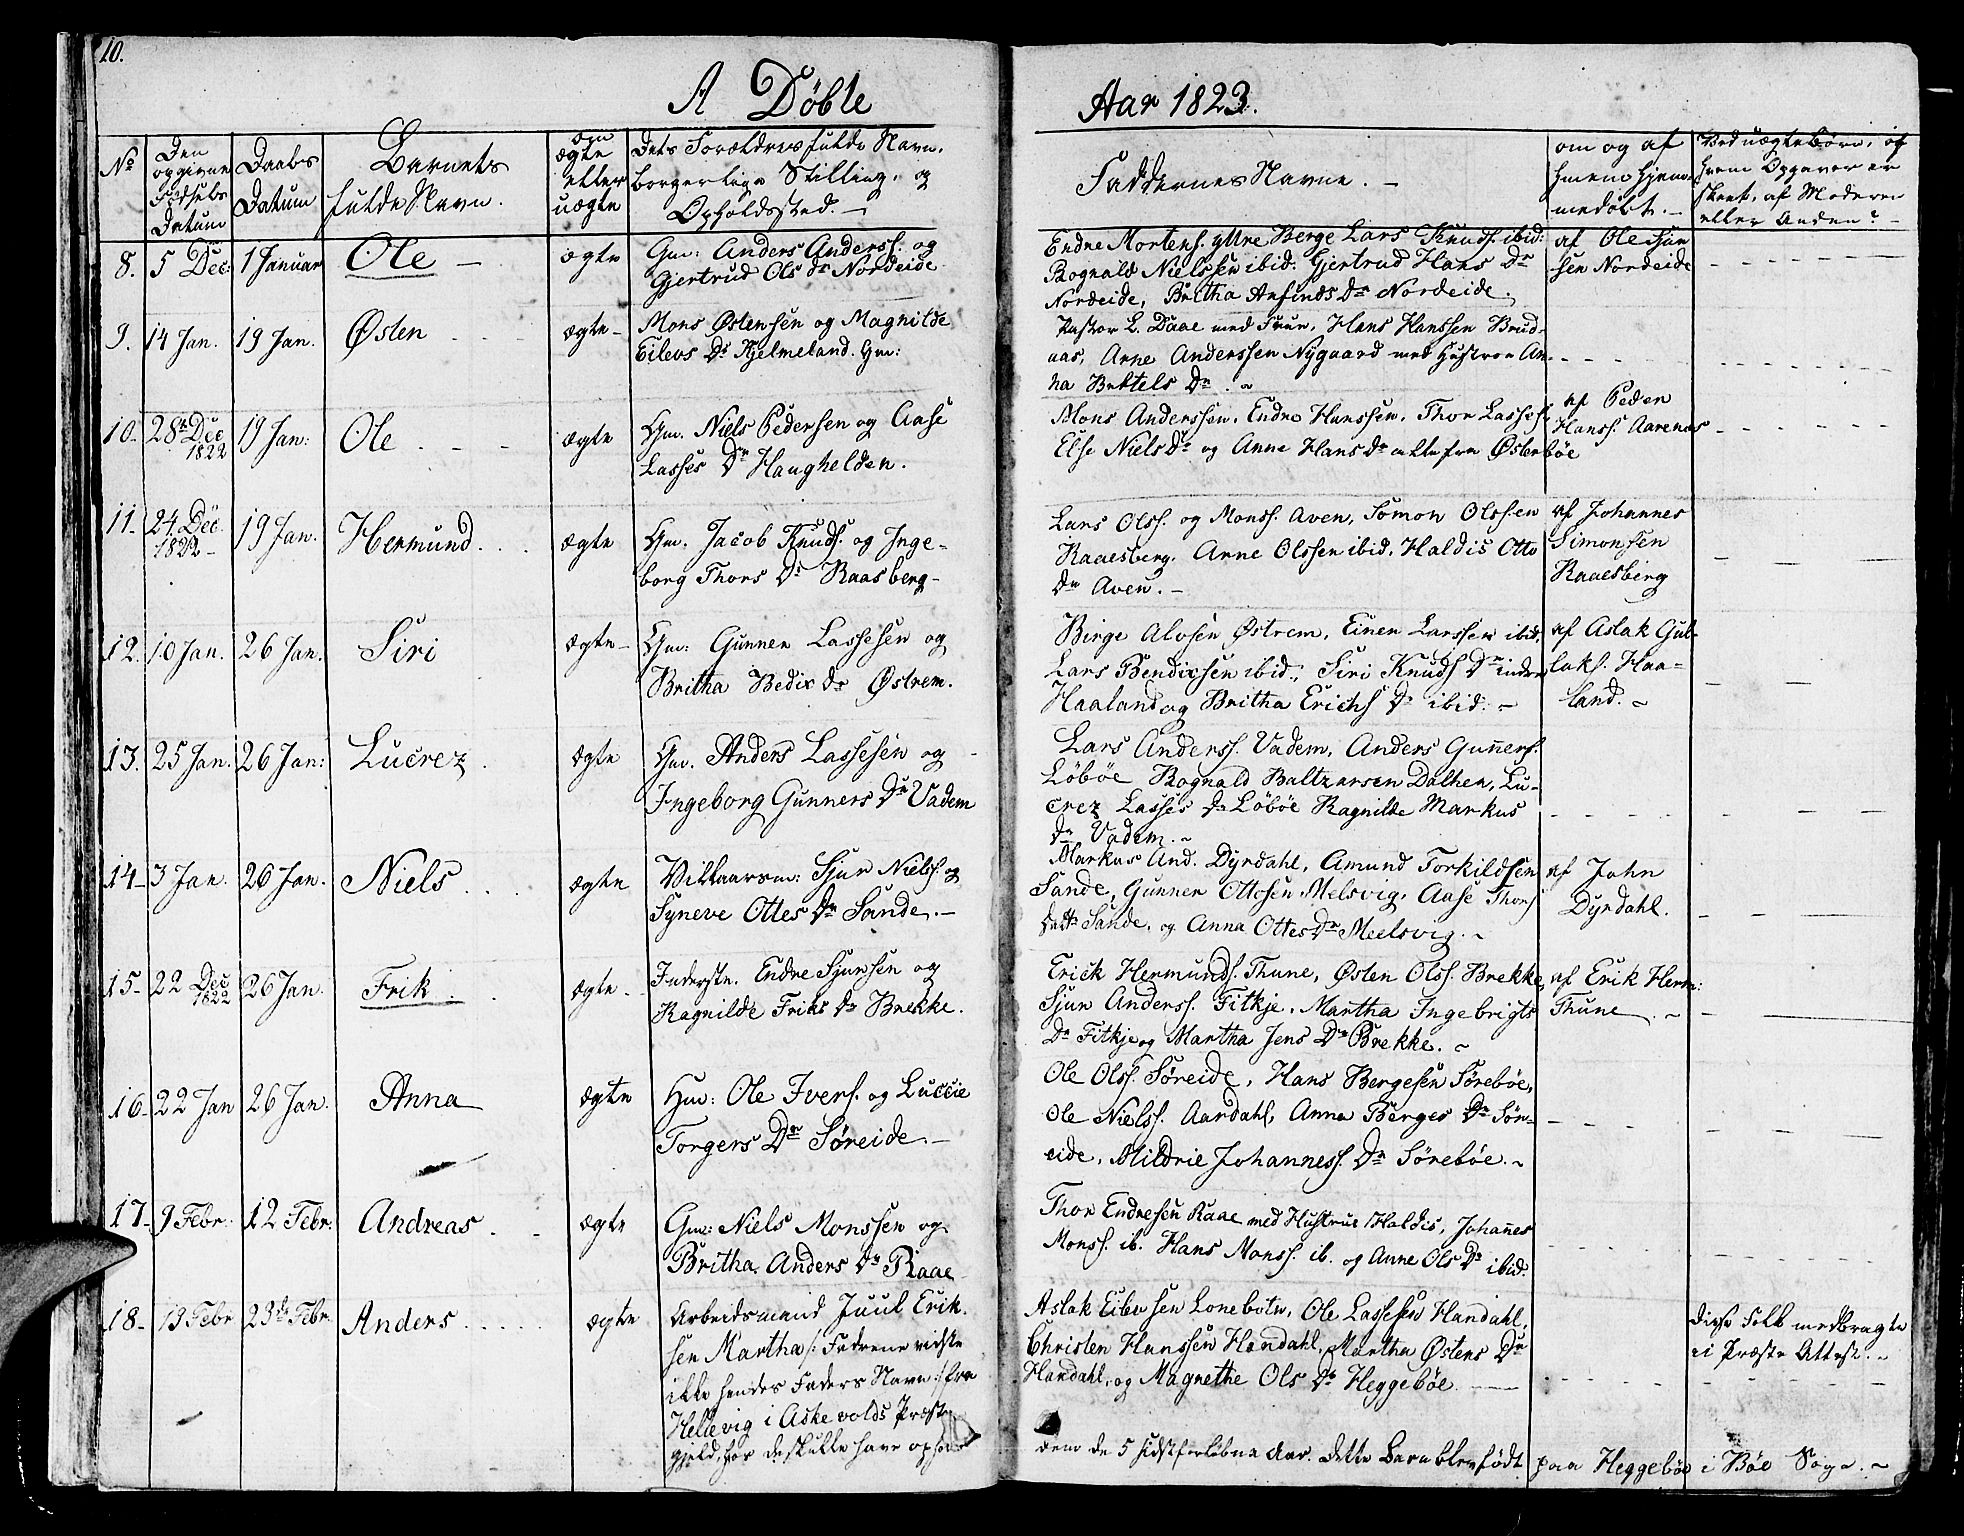 10.
A Døbte
Aar 1823.
No
Den opgivne Fødsels Datum
Daabs Datum
Barnets fulde Navn.
om ægte eller uægte
Dets Forældres fulde Navn, borgerlige Stilling, og Opholdssted. —
Faddernes Navne. —
om og af hvem hjemmedøbt. —
Ved uægte børn, af hvem Opgaver er skeet, af Moderen eller Anden? —
8. 5 Dec: 1 Januar Ole — ægte Gm: Anders Anderss. og
Gjertrud Ols Dr Nordeide.
Endre Mortens. yttre Berge Lars Knuds. ibid:
Rognald Nielssen ibid: Gjertrud Hans Dr
Nordeide, Britha Anfinds Dr Nordeide.
af Ole
sen Nordeide
9. 14 Jan. 19 Jan. Østen ægte - Mons Østensen og Magnilde
Eilevs Dr Hjelmeland. Gm:
Pastor L. Daae med Frue, Hans Hanssen Brud-
aas, Arne Anderssen Nygaard med Hustroe An-
na Bottels Dr. ~
10. 28de Dec 1822 19 Jan: Ole ægte Gm. Niels Pedersen og Aase
Lasses Dr Haughelden.
Mons Anderssen, Endre Hanssen, Thor Lasses.
Else Niels Dr og Anne Hans Dr alle fra Østerbøe
af Peder
Hanss. Aarenas
11. 24 Dec. 1822 - 19 Jan. Hermund ægte Gm. Jacob Knuds. og Inge-
borg Thors Dr Raasberg -
Lars Olss. og Monss. Aven, Simon Olssen
Raaesberg, Arne Olssen ibid, Haldis Otto
Dr Aven. —
af Johannes
Simonsen
Raaesberg
12. 10 Jan. 26 Jan. Siri ægte - Gm: Gunner Lassesen og
Britha Bedix Dr Østrem.
Birge Alvsen Østrem, Einer Larssen ibid,
Lars Bendixsen ibid., Siri Knuds Dr indre
Haaland og Britha Erichs Dr ibid: ~
af Aslak Gut-
laks. Haa-
land. ~
13. 25 Jan. 26 Jan: Lucrez ægte Gm. Anders Lassesen og
Ingeborg Gunners Dr Vadem
Lars Anderss. Vadem, Anders Gunners:
Løbøe Rognald Baltzarsen Dalhen, Lu-
crez Lasses Dr Løbøe Ragnilde Markus
Dr Vadem. ~
14 - 3 Jan. 26 Jan. Niels ægte Vilkaarsm: Sjur Nielss. og
Syneve Ottes Dr Sande. —
Markus And. Dyrdahl, Amund Torkildsen
Sande, Gunner Ottosen Melsvig, Aase Thors
Datt. Sande, og Anna Ottes Dr Meelsvig. ~
af John
Dyrdahl.
15 - 22 Dec 1822 26 Jan. Frik ægte - Inderste. Endre Sjursen og
Ragnilde Friks Dr Brekke.
Erick Hermunds. Thune, Østen Olss. Brekke,
Sjur Anderss. Fitkje, Martha Ingebrigts
Dr Fitkje og Martha Jens Dr Brekke. ~
af Erik Herm:
Thune. ~
16 - 22 Jan 26 Jan. Anna ægte Hm: Ole Ivers. og Luccie
Torgers Dr Søreide. —
Ole Olss. Søreide, Hans Bergesen Sørebøe,
Ole Nielss. Aardahl, Anna Berges Dr Sør-
eide, Mildrie Johanness. Dr Sørebøe. ~
17 - 9 Febr: 12 Febr: Andreas ægte Gm: Niels Monssen og
Britha Anders Dr Raae
Thor Endresen Raae med Hustrue Haldis, Johanes
Monss. ib. Hans Monss. ib. og Anne Ols Dr ibid.
18 - 19 Febr 23de Febr. Anders ægte Arbeidsmand Juul Erik-
sen Martha /: Fadrene vidste
ikke hendes Faders Navn :/ fra
Hellevig i Askevolds Præste-
gjeld, hvor de skulle have ophol-
Aslak Eilevsen Lonebotn, Ole Lassesen Handahl,
Christen Hanssen Handahl, Martha Østens Dr
Handahl, og Magnethe Ols Dr Heggebøe.
disse Folk medbragte
ei Præste Attest. ~
dem de 5 sidstforløbne Aar. Dette Barn blev født paa Heggebøe i Bøe Sogn. ~